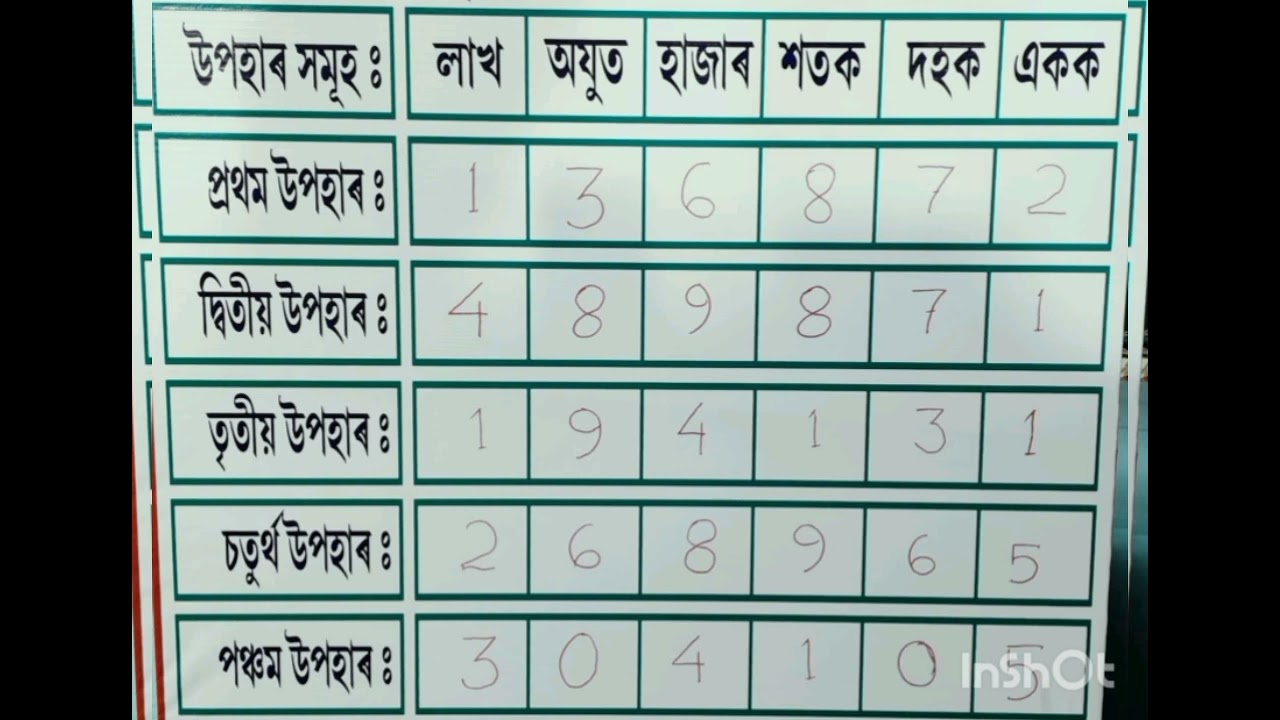 উপহাৰ সমূহ ঃ লাখ অযুত হাজাৰ শতক দহক একক
প্ৰথম উপহাৰ ঃ 1 3 6 8 7 2
দ্বিতীয় উপহাৰ ঃ 4 8 9 8 7 1
তৃতীয় উপহাৰ ঃ 1 9 4 1 3 1
চতুৰ্থ উপহাৰ ঃ 2 6 8 9 6 5
পঞ্চম উপহাৰ ঃ 3 0 4 1 0 5
InShOt